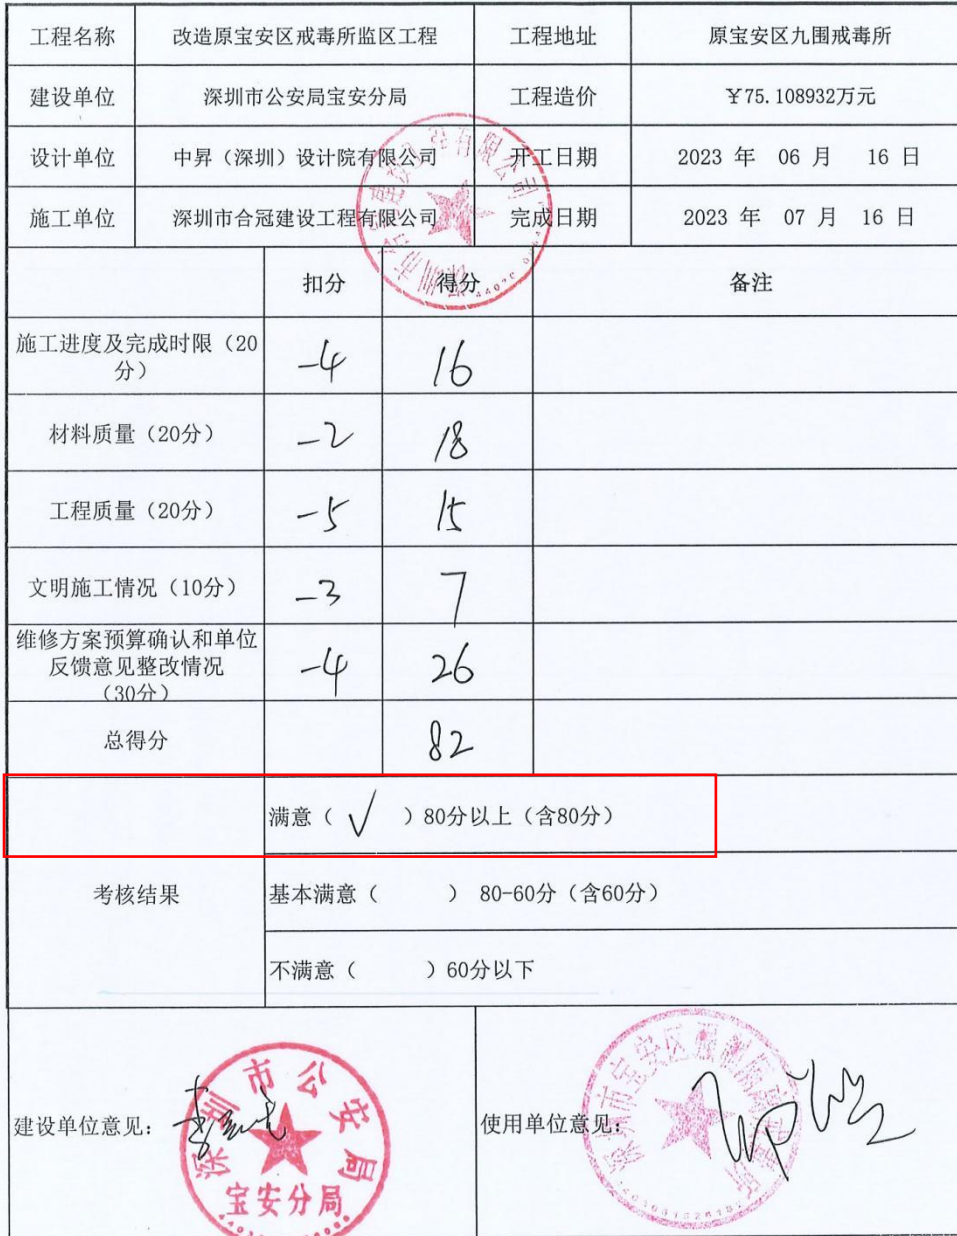 工程名称 改造原宝安区戒毒所监区工程 工程地址 原宝安区九围戒毒所
建设单位 深圳市公安局宝安分局 工程造价 ¥75.108932万元
设计单位 中昇（深圳）设计院有限公司 开工日期 2023 年 06 月 16 日
施工单位 深圳市合冠建设工程有限公司 完成日期 2023 年 07 月 16 日
扣分 得分 备注
施工进度及完成时限（20
分） -4 16
材料质量（20分） -2 18
工程质量（20分） -5 15
文明施工情况（10分） -3 7
维修方案预算确认和单位
反馈意见整改情况 -4 26
（30分）
总得分 82
满意（ √ ）80分以上（含80分）
考核结果 基本满意（ ） 80-60分（含60分）
不满意（ ）60分以下
建设单位意见： 使用单位意见：
深圳市公安局
宝安分局